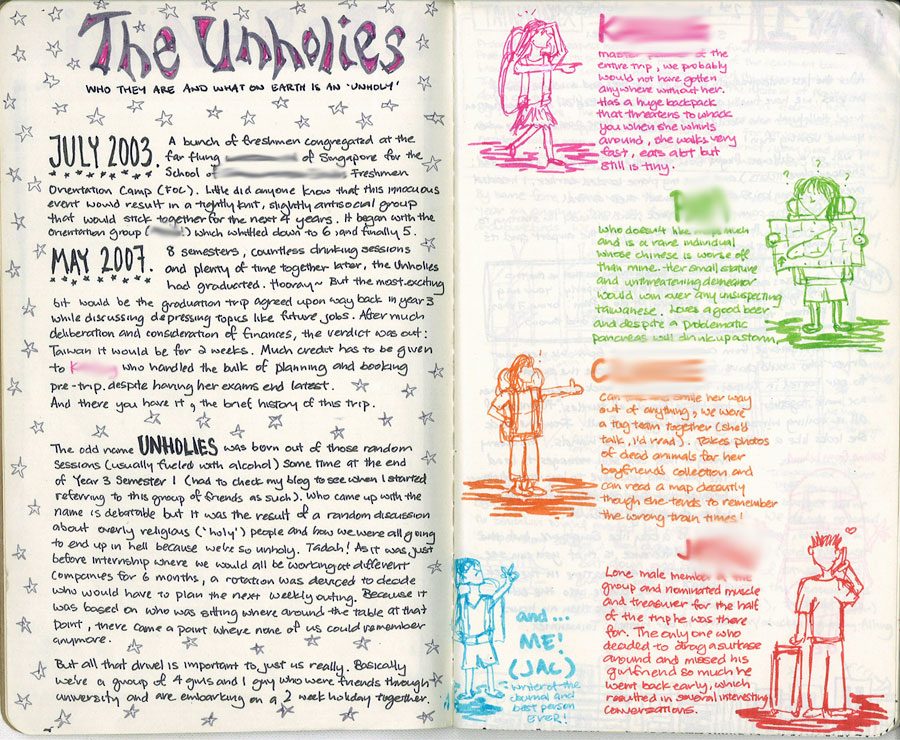 The Unholies
WHO THEY ARE AND WHAT ON EARTH IS AN 'UNHOLY'
JULY 2003. A bunch of freshmen congregated at the
far flung of Singapore for the
School of Freshmen
Orientation Camp (FOC). Little did anyone know that this innocuous
event would result in a tightly knit, slightly antisocial group
that would stick together for the next 4 years. It began with the
orientation group ( ) which whittled down to 6 and finally 5.
MAY 2007. 8 semesters, countless drinking sessions
and plenty of time together later, the Unholies
had graduated. Hooray~ But the most exciting
bit would be the graduation trip agreed upon way back in year 3
while discussing depressing topics like future jobs. After much
deliberation and consideration of finances, the verdict was out:
Taiwan it would be for 2 weeks. Much credit has to be given
to K who handled the bulk of planning and booking
pre-trip. despite having her exams end latest.
And there you have it, the brief history of this trip.
The odd name UNHOLIES was born out of those random
sessions (usually fueled with alcohol) some time at the end
of Year 3 Semester 1 (had to check my blog to see when I started
referring to this group of friends as such). Who came up with the
name is debatable but it was the result of a random discussion
about overly religious ('holy') people and how we were all going
to end up in hell because we're so unholy. Tadah! As it was just
before internship where we would all be working at different
companies for 6 months, a rotation was devised to decide
who would have to plan the next weekly outing. Because it
was based on who was sitting where around the table at that
point, there came a point where none of us could remember
anymore.
But all that drivel is important to just us really. Basically
we're a group of 4 girls and 1 guy who were friends through
university and are embarking on a 2 week holiday together.
K
the
entire trip, we probably
would not have gotten
anywhere without her.
Has a huge backpack
that threatens to whack
you when she whirls
around, she walks very
fast, eats a bt but
still is tiny.
? ?
P
who doesn't like much
and is a rare individual
whose chinese is worse off
than mine. Her small stature
and unthreatening demeanor
would win over any unsuspecting
taiwanese. Loves a good beer
and despite a problematic
pancreas will drink up a storm.
C
can smile her way
out of anything, we were
a tag team together (she'd
talk, I'd read). Takes photos
of dead animals for her
boyfriend's collection and
can read a map decently
though she tends to remember
the wrong train times!
J
Lone male member
group and nominated muscle
and treasurer for the half
of the trip he was there
for. The only one who
decided to drag a suitcase
around and missed his
girlfriend so much he
went back early, which
resulted in several interesting
conversations.
and...
ME!
(JAC)
writer of the
journal and
best person
EVER!